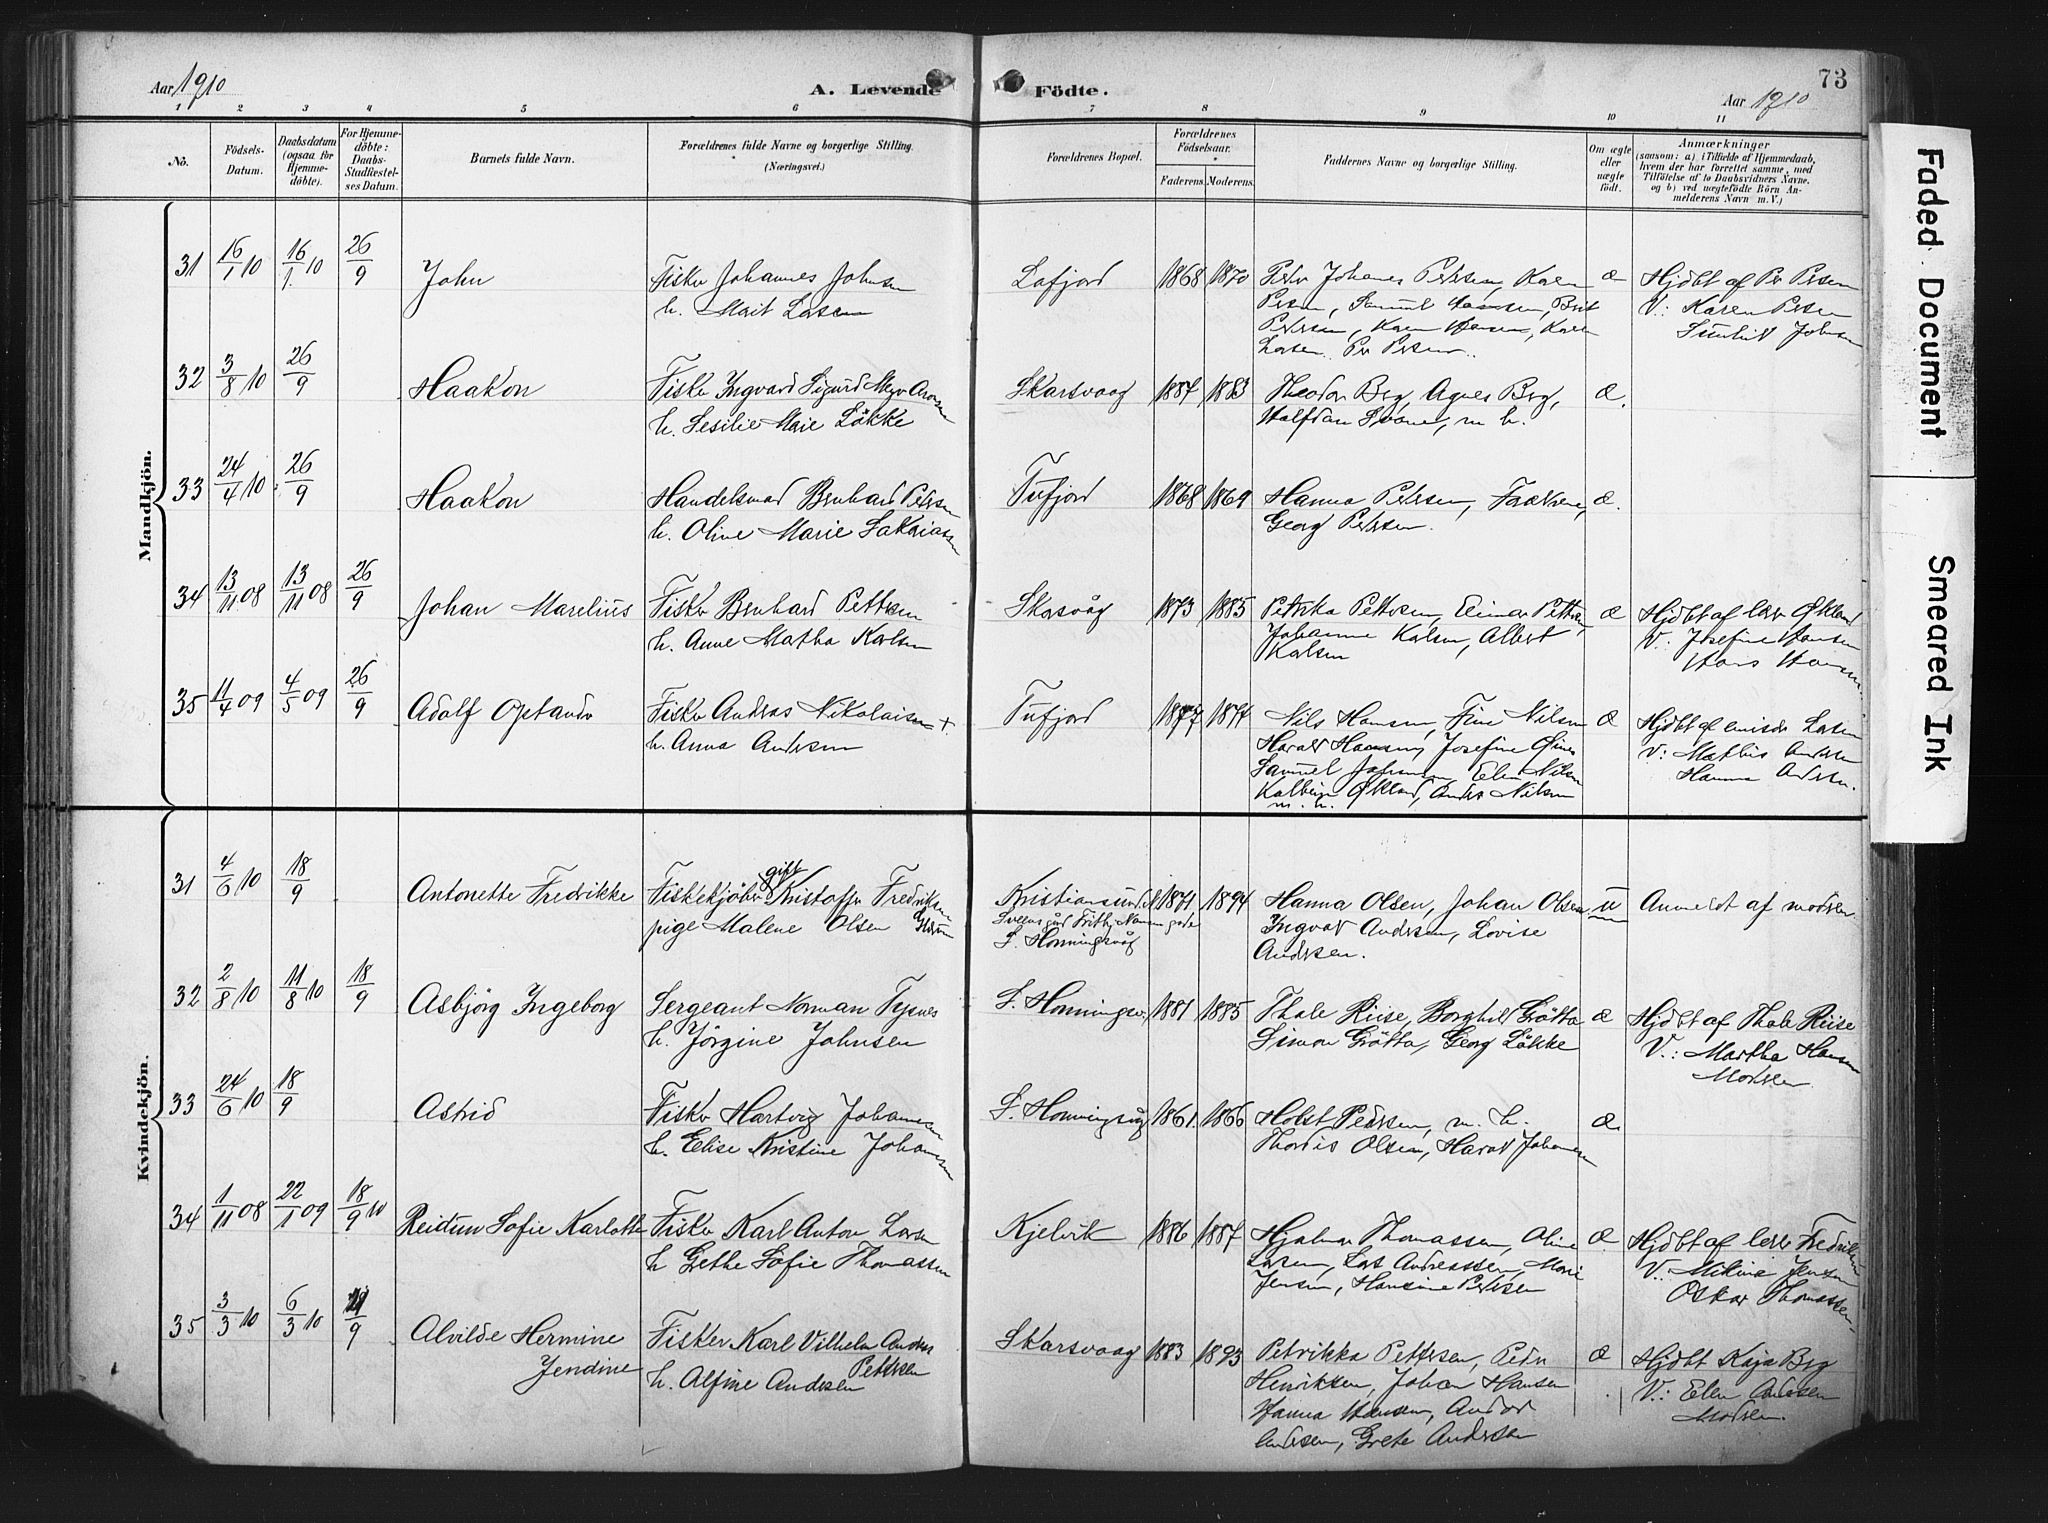 Aar 1910
A. Levende Födte.
73
Aar 1910
1 2 3 4 5 6 7 8 9 10 11
No.
Födsels-Datum.
Daabsdatum (ogsaa for Hjemme-döbte).
For Hjemme-döbte: Daabs-Stadfæstel-ses Datum.
Barnets fulde Navn.
Forældrenes fulde Navne og borgerlige Stilling.
(Næringsvei.)
Forældrenes Bopæl.
Forældrenes Födselsaar.
Faderens. Moderens.
Faddernes Navne og borgerlige Stilling.
Om ægte eller uægte födt.
Anmærkninger
(saasom: a) i Tilfælde af Hjemmedaab,
hvem der har forrettet samme, med
Tilföielse af to Daabsvidners Navne.
og b) ved uægtefödte Börn An-
melderens Navn m. V.)
Mandkjön.
31 16/1 10 16/1 10 26/9 John Fisker Johannes Johnsen Lafjord 1868 1870 Peter Johanes Petersen, Karen æ Hjdbt af Per Persen
h. Marit Larsen Persen, Samuel Hansen, Brit V.: Karen Persen
Petersen, Karen Hansen, Karen Johnsen
Larsen Per Persen.
32 3/8 10 26/9 Haakon Fisker Ingvard Sigurd Skarsvaag 1887 1883 Theodor Berg, Agnes Berg, æ.
h. Sesilie Marie Løkke Halfdan m. h.
33 24/4 10 26/9 Haakon Handelsmand Bernhard Petersen Tufjord 1868 1869 Hanna Petersen, Faderen, æ.
h. Oline Marie Sakariassen Georg Petersen.
34 13/11 08 13/11 08 26/9 Johan Marelius Fisker Bernhard Pettersen Skarsvåg 1873 1885 Petrika Pettersen, Einar Pettersen, æ Hjdbt af lærer Økland
h. Anne Martha Karlsen Johanne Karlsen, Albert V. Josefine Hansen
Karlsen Hans Hansen.
35 11/4 09 4/5 09 26/9 Adolf Fisker Andreas Nikolaisen + Tufjord 1877 Nils Hansen, Fine Nilsen æ Hjdbt af emisær Larsen
h. Anna Andersen Harald Hansen, Josefine V: Mathis Andersen
Samuel Johnsen Elen Nilsen Hanna Andersen.
Økland, Anders Nilsen
m. h.
Kvindekjön.
31 4/6 10 18/9 Antonette Fredrikke Fiskekjöber gift Kristoffer Fredriksen Kristiansund N 1871 1894 Hanna Olsen, Johan Olsen u Anmeldt af moderen
pige Malene Olsen Ingvar Andersen, Lovise
S. Honningsvåg Andersen.
32 2/8 10 11/8 10 18/9 Asbjörg Ingeborg Sergeant Norman Tysnes S. Honningsv. 1881 1885 Thale Riise, Borghild Grötta æ Hjdbt af Thale Riise
h. Jörgine Johnsen Simon Grötta, Georg Lökke V.: Martha Hansen
Moderen
33 24/6 10 18/9 Astrid Fisker Hartvig Johansen S. Honningsvåg 1861. 1866 Holst Pedersen, m. h. æ.
h. Elise Kristine Johansen Thordis Olsen, Harald Johansen
34 1/11 08 22/1 09 18/9 10 Reidun Sofie Karlotte Fisker Karl Anton Larsen Kjelvik 1886 1887 Hjalmar Thomassen, Oline æ. Hjdbt af lærer Fredriksen
h Grethe Sofie Thomassen Larsen, Lars Andreassen, Marie V.: Mikine Jensen
Jensen, Hansine Petersen Oskar Thomassen
35 3/3 10 6/3 10 /9 Alvilde Hermine Fisker Karl Vilhelm Anders Skarsvaag 1883 1893 Petrikka Pettersen, Peder æ Hjdbt Kaja Berg
Jendine Pettersen h. Alfine Andersen Henriksen, Johan Hansen V.: Elen Andersen
Hanna Hansen, Andor Moderen.
Andersen, Grete Andersen
Faded Document
Smeared Ink